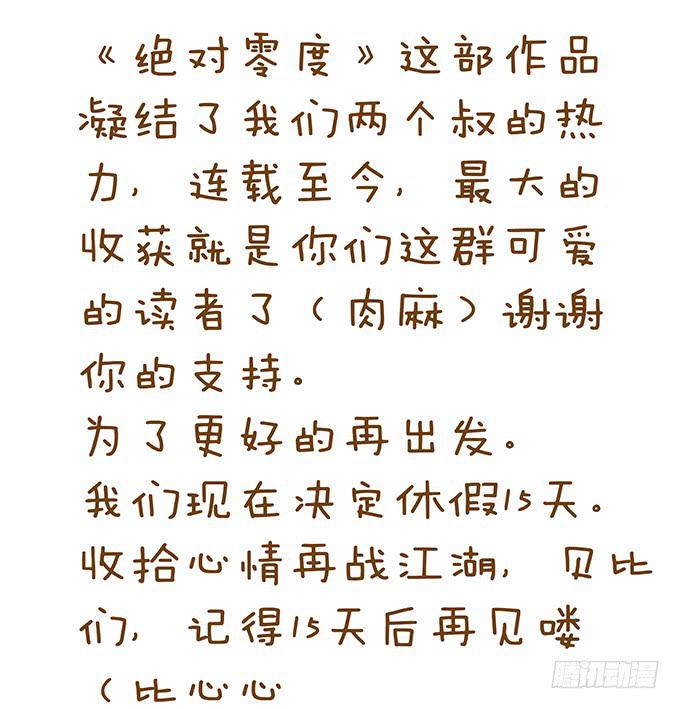 《绝对零度》这部作品
凝结了我们两个叔的热
力,连载至今,最大的
收获就是你们这群可爱
的读者了(肉麻)谢谢
你的支持。
为了更好的再出发。
我们现在决定休假15天。
收拾心情再战江湖,贝比
们,记得15天后再见喽
(比心心
腾讯动漫